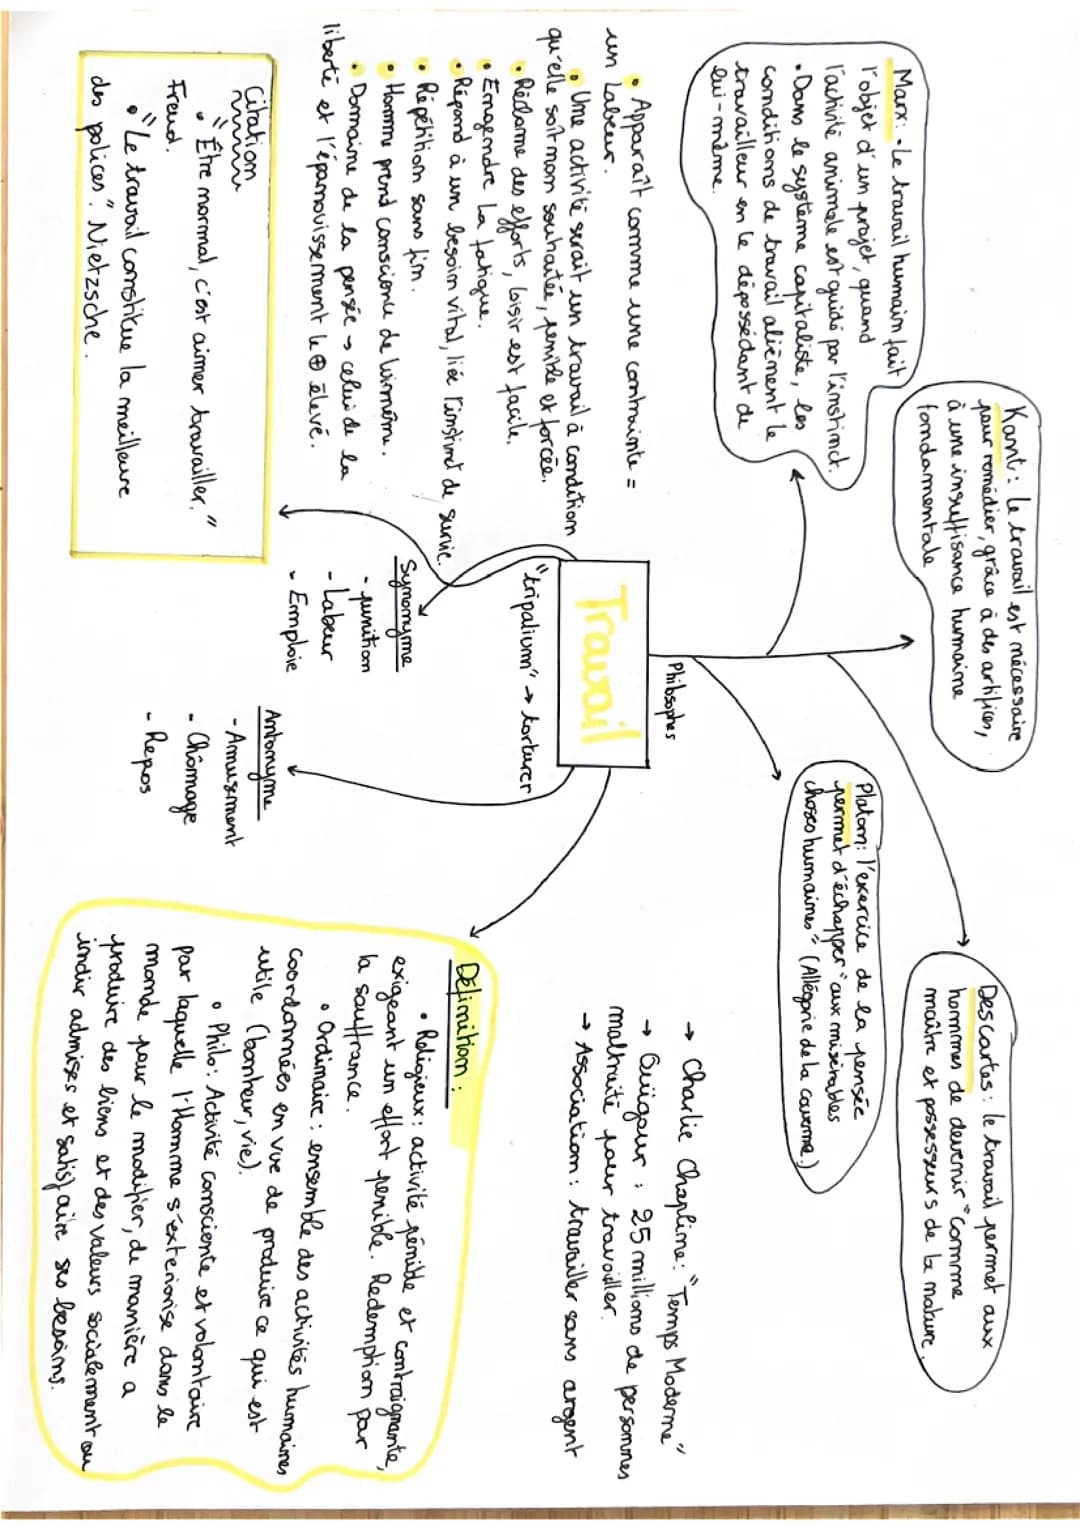 Marx : • Le travail humain fait
l'objet d'un projet, quand
l'activité animale est guidé par l'instinct.
• Dans le système capitaliste, les
conditions de travail aliènent le
travailleur en le dépossédant de
lui-même.
Kant : le travail est nécessaire
pour remédier, grâce à des artifices,
à une insuffisance humaine
fondamentale
Platon : l'exercice de la pensée
permet d'échapper "aux misérables
choses humaines" (Allégorie de la caverne)
Descartes : le travail permet aux
hommes de devenir "comme
maître et possesseurs de la nature.
Philosophes
Travail
"tripalium" → torturer
• Apparaît comme une contrainte =
un Labeur.
• Une activité serait un travail à condition
qu'elle soit non souhaitée, pénible et forcée.
• Réclame des efforts, loisir est facile.
• Engendre la fatigue.
• Répond à un besoin vital, liée l'instinct de survie.
• Répétition sans fin.
• Homme prend conscience de lui même.
• Domaine de la pensée → celui de la
liberté et l'épanouissement le ⊕ élevé.
Citation
• "Être normal, c'est aimer travailler."
Freud.
• "Le travail constitue la meilleure
des polices." Nietzsche.
Synonyme
- punition
- Labeur
- Emploie
Antonyme
- Amusement
- Chômage
- Repos
→ Charlie Chapline : "Temps Moderne"
→ Ouïgour : 25 millions de personnes
maltraité pour travailler.
→ Association : travailler sans argent
Définition :
• Religieux : activité pénible et contraignante,
exigeant un effort pénible. Redemption par
la souffrance.
• Ordinaire : ensemble des activités humaines
coordonnées en vue de produire ce qui est
utile (bonheur, vie).
• Philo : Activité consciente et volontaire
par laquelle l'Homme s'exteriorise dans le
monde pour le modifier, de manière a
produire des liens et des valeurs socialement ou
indiv admises et satisfaire ses besoins.